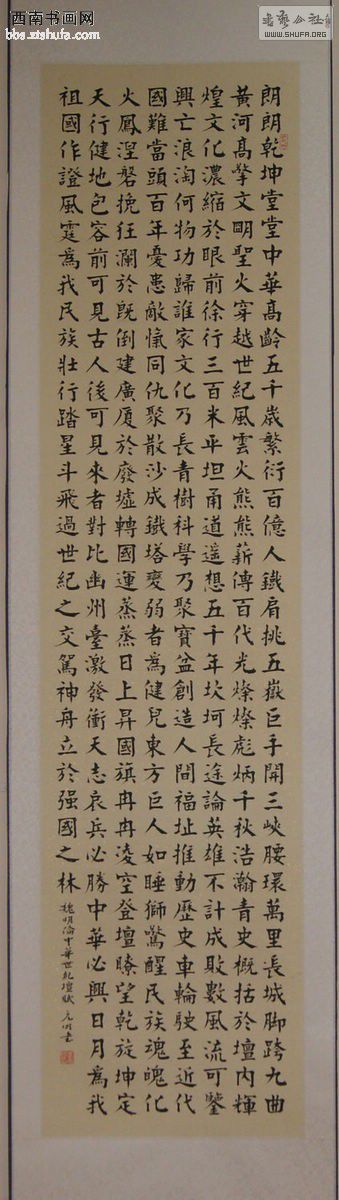 西南书画网
bbs.xtshufa.com
书艺公社
WWW.SHUFA.ORG
朗朗乾坤堂堂中華高齡五千歲繁衍百億人鐵肩挑五嶽巨手開三峽腰環萬里長城脚跨九曲
黃河高擎文明聖火穿越世紀風雲火熊熊薪傳百代光燦燦彪炳千秋浩瀚青史概括於壇内輝
煌文化濃縮於眼前徐行三百米平坦甬道遥想五千年坎坷長途論英雄不計成敗數風流可鑒
興亡浪淘何物功歸誰家文化乃長青樹科學乃聚寶盆創造人間福址推動歷史車輪駛至近代
國難當頭百年憂患敵愾同仇聚散沙成鐵塔變弱者為健兒東方巨人如睡獅驚醒民族魂魄化
火鳳涅磐挽狂瀾於既倒建廣厦於廢墟轉國運蒸蒸日上昇國旗冉冉凌空登壇瞭望乾旋坤定
天行健地包容前可見古人後可見來者對比幽州臺激發衝天志哀兵必勝中華必興日月為我
祖國作證風霆為我民族壯行踏星斗飛過世紀之交駕神舟立於强國之林
魏明倫中華世紀壇賦